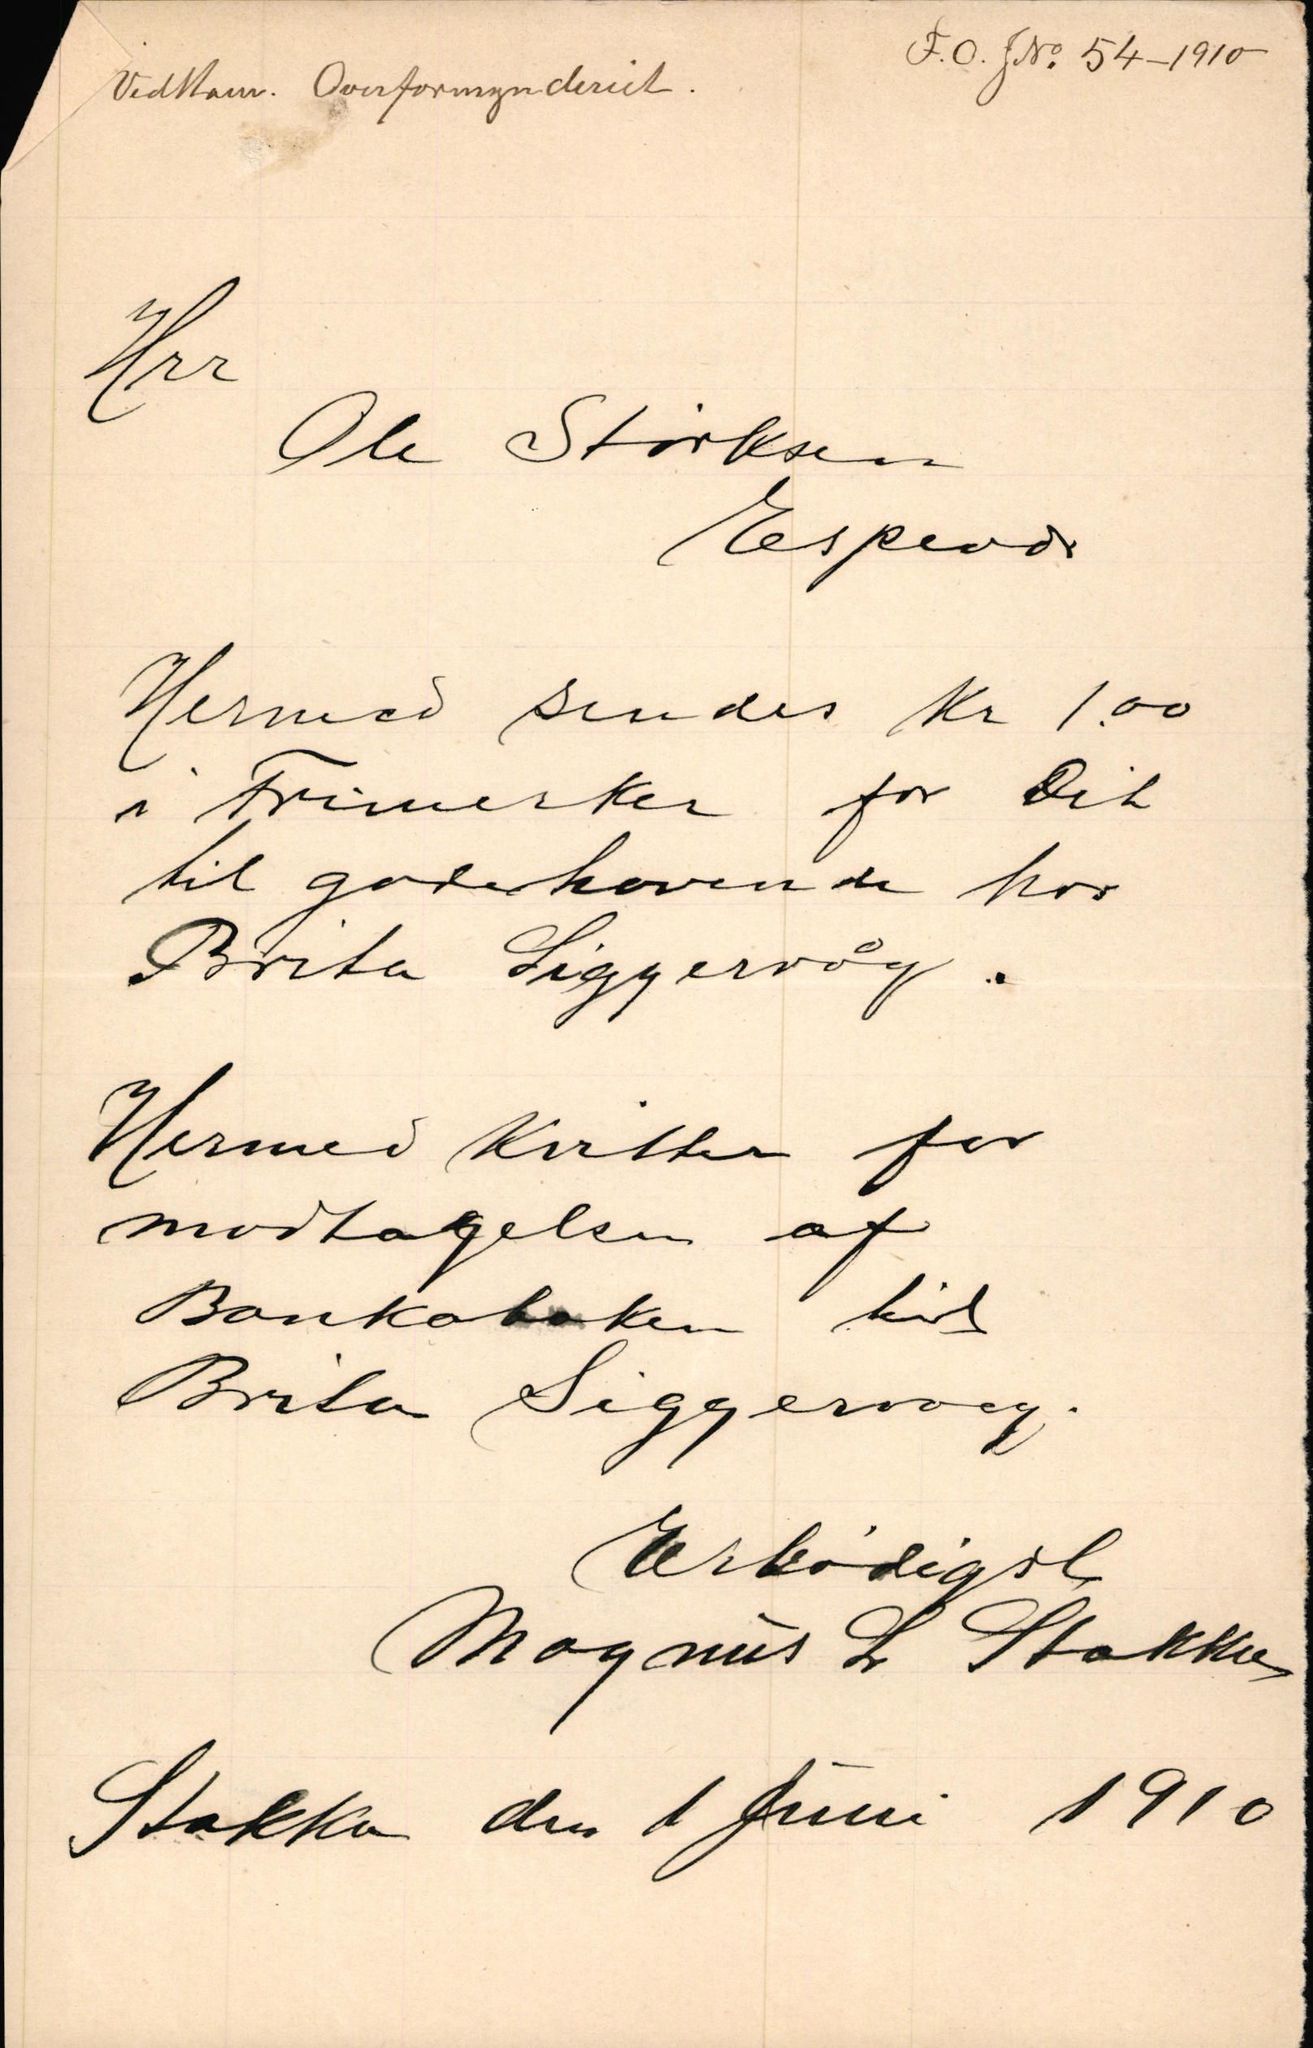 F.O. JNo. 54-1910
Vedkom. Overformynderiet.
Hrr
Ole Störksen
Espevær
Hermed sendes Kr 1.00
i Frimerker for Dit
til godehavende hos
Brita Siggervåg.
Hermed Kvitter for
modtagelsen af
Bankaboken til
Brita Siggervaag.
Erbödigst
Magnus L Stakka
Stakka den 1 Juni 1910